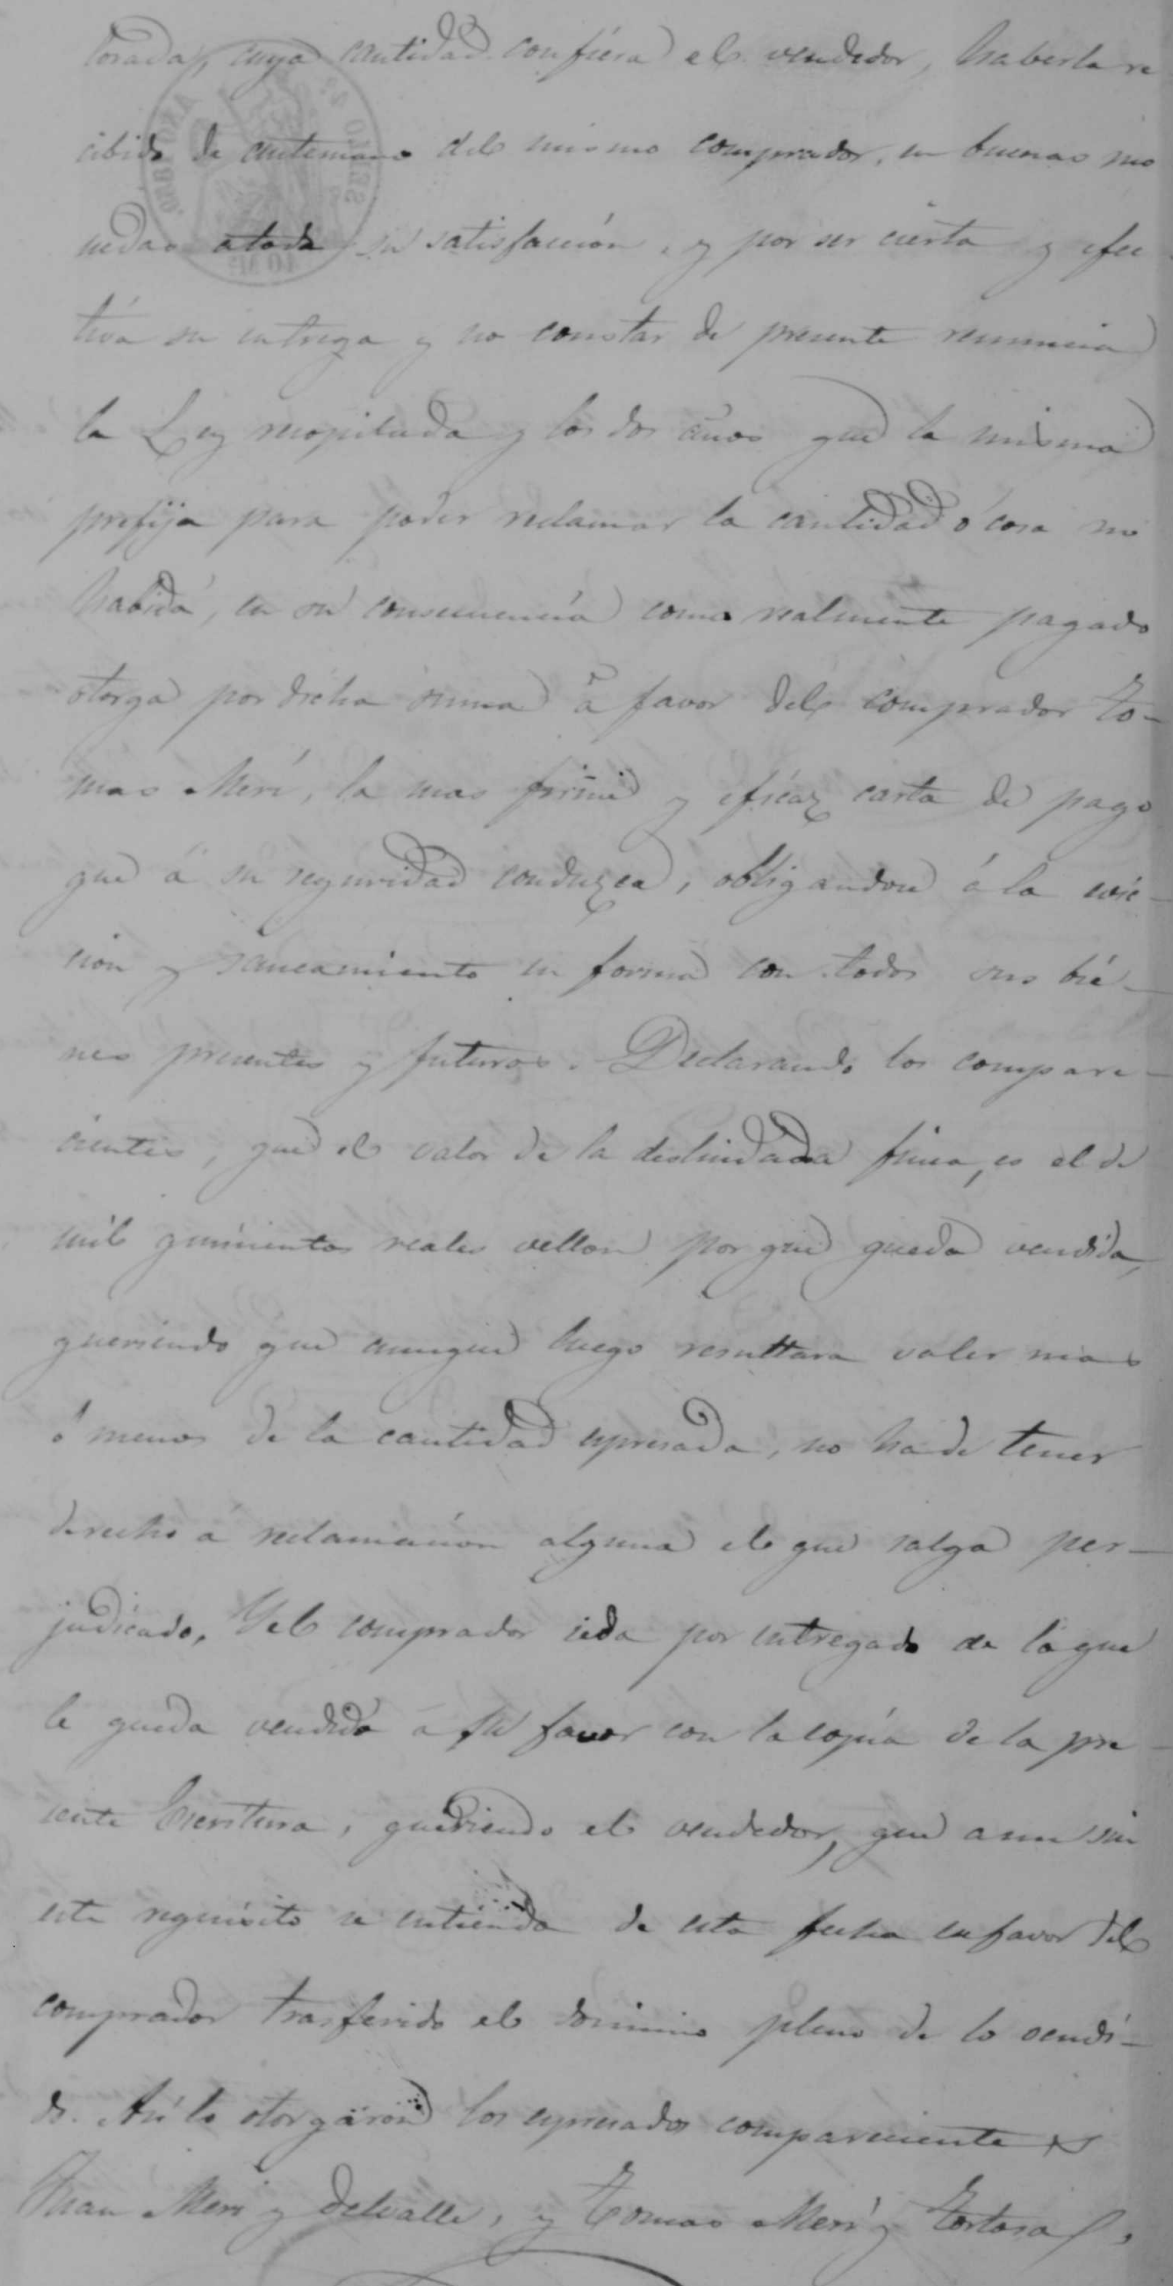 torada, cuya cantidad confiesa el vendedor, haberla re
cibido de antemano del mismo comprador, en buenas mo
nedas atoda su satisfacción, y por ser cierta y efec
tiva su entrega y no constar de presente renuncia
la Ley recopilada y los dos años que la misma
prefija para poder reclamar la cantidad ó cosa no
habida, en su consecuencia como realmente pagado
otorga por dicha suma á favor del comprador To-
mas Merí, la mas firme y eficaz carta de pago
que á su seguridad conduzca, obligandose á la evic-
cion y saneamiento en forma con todos sus bie-
nes presentes y futuros. Declarando los compare-
cientes, que el valor de la deslindada finca, es el de
mil quinientos reales vellon por que queda vendida,
queriendo que aunque luego resultara valer mas
ó menos de la cantidad espresada, no ha de tener
derecho á reclamación alguna el que salga per-
judicado. Y el comprador seda por entregado de lo que
le queda vendido á su favor con la copia de la pre-
sente Escritura, queriendo el vendedor, que aun sin
este requisito se entienda de esta fecha en favor del
comprador trasferido el dominio pleno de lo vendi-
do. Así lo otorgaron los espresados comparecientes
Juan Merí y Delvalle, y Tomas Merí y Tortosa,